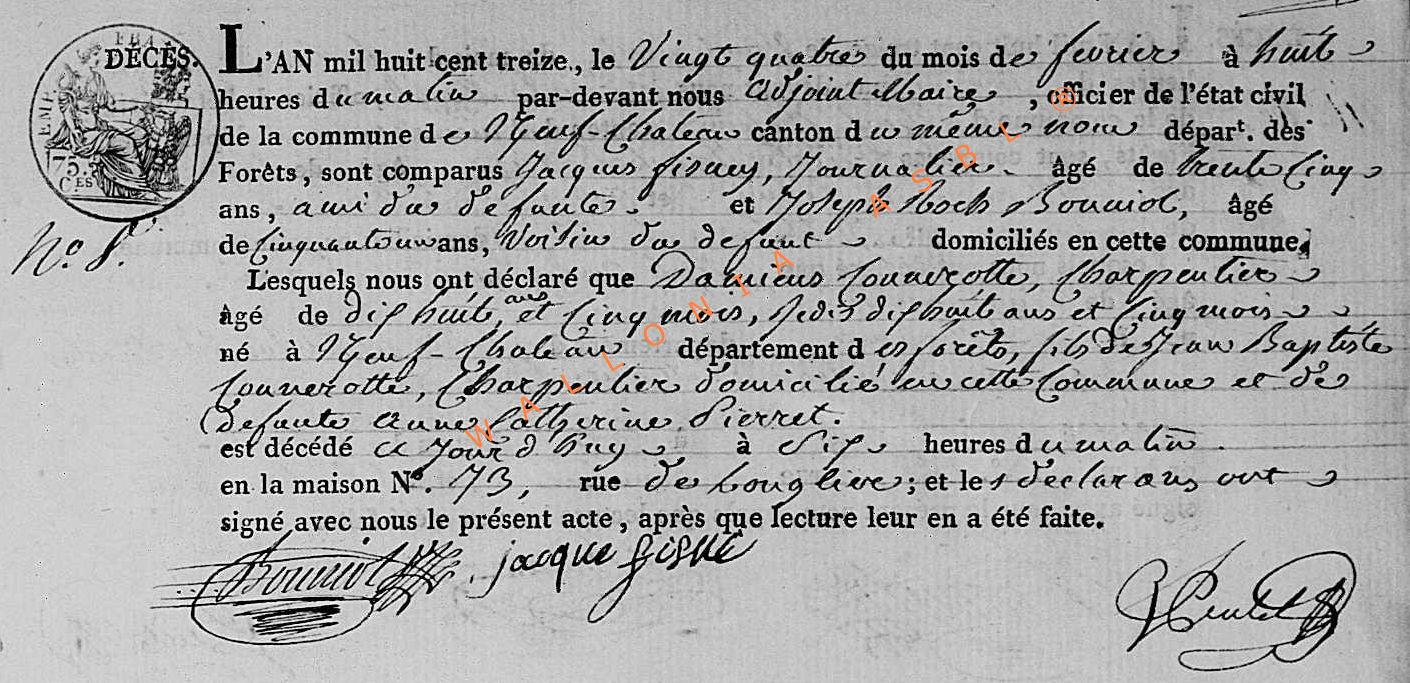 DÉCÈS. L'AN mil huit cent treize, le Vingt quatre du mois de fevrier à huit
heures du matin par-devant nous Adjoint Maire, officier de l'état civil
de la commune de Neuf-Chateau canton du même nom départ. des
Forêts, sont comparus Jacques , Journalier âgé de trente Cinq
ans, ami du defunte et Joseph Roch Bouniol, âgé
de Cinquanteun ans, Voisin du defunt domiciliés en cette commune.
No. 8.
Lesquels nous ont déclaré que Damiens Connerotte, Charpentier
âgé de dix huit ans et Cinq mois, je dis dix huit ans et Cinq mois
né à Neuf-Chateau département des forêts, fils de Jean Baptiste
Connerotte, Charpentier domicilié en cette Commune et de
defunte Anne Catherine Pierret.
est décédé ce Jourd'huy à Six heures du matin.
en la maison No. 73, rue de Longlier; et les déclarans ont
signé avec nous le présent acte, après que lecture leur en a été faite.
Bouniol jacque
75 CES
WALLONIA ASBL ©